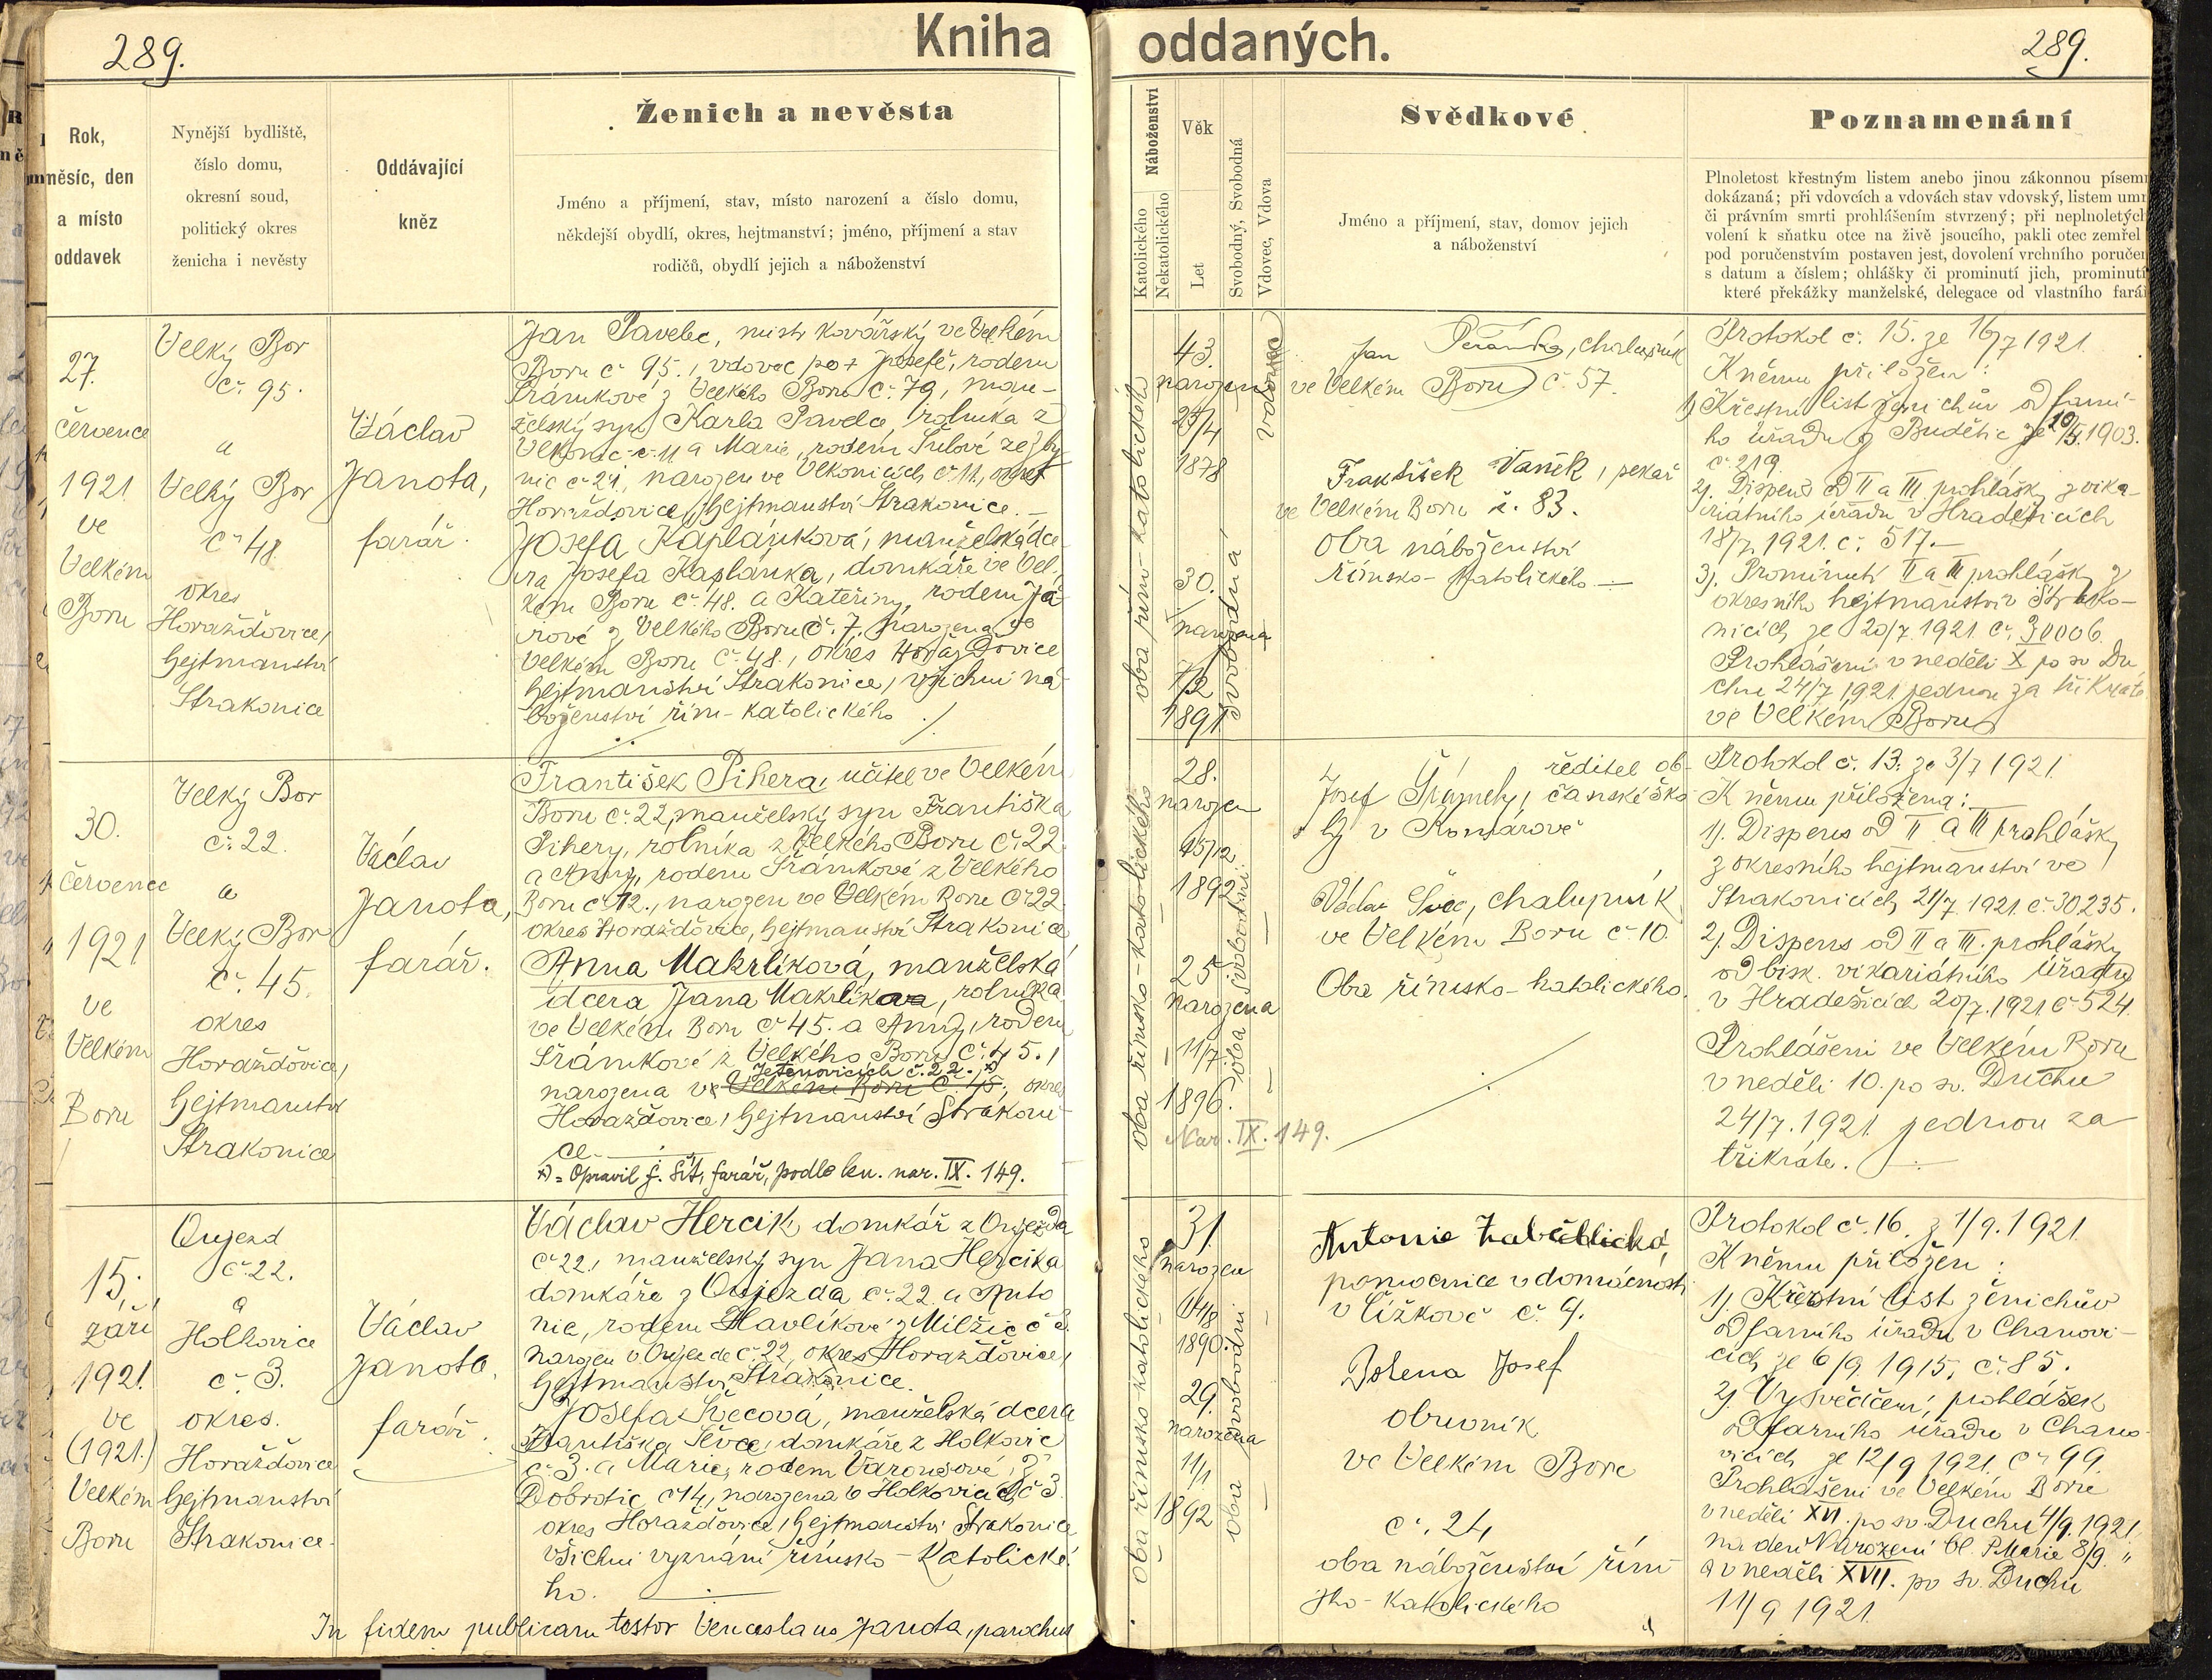 289.
Kniha
oddaných.
289.
Rok,
měsíc, den
a místo
oddavek
Nynější bydliště,
číslo domu,
okresní soud,
politický okres
ženicha i nevěsty
Oddávající
kněz
Ženich a nevěsta
Jméno a příjmení, stav, místo narození a číslo domu,
někdejší obydlí, okres, hejtmanství; jméno, příjmení a stav
rodičů, obydlí jejich a náboženství
Náboženství
Katolického
Nekatolického
Věk
Let
Svobodný, Svobodná
Vdovec, Vdova
Svědkové
Jméno a příjmení, stav, domov jejich
a náboženství
Poznamenání
Plnoletost křestným listem anebo jinou zákonnou písem
dokázaná; při vdovcích a vdovách stav vdovský, listem umr
či právním smrti prohlášením stvrzený; při neplnoletých
volení k sňatku otce na živě jsoucího, pakli otec zemřel
pod poručenstvím postaven jest, dovolení vrchního poručen
s datum a číslem; ohlášky či prominutí jich, prominutí
které překážky manželské, delegace od vlastního farář
27.
července
1921
ve
Velkém
Boru
Velký Bor
č. 95.
a
Velký Bor
č. 48
okres
Horažďovice,
hejtmanství
Strakonice
Václav
Janota,
farář.
Jan Pavelec, mistr kovářský ve Velkém
Boru č. 95., vdovec po + Josefě, rodem
Šrámkové z Velkého Boru č. 79, man-
želský syn Karla Pavelce, rolníka z
Velkonic č. 11 a Marie, rodem
nic č. 21, narozen ve Velkonicích č. 11, okres
Horažďovice, hejtmanství Strakonice. –
Josefa Kaplánková, manželská dce-
ra Josefa Kaplánka, domkáře ve Vel-
kém Boru č. 48. a Kateřiny, rodem Ja-
rové z Velkého Boru č. 7. narozena ve
Velkém Boru č. 48., okres Horažďovice
hejtmanství Strakonice, všichni ná-
boženství řím-katolického
oba řím-katolického
43.
narozen
1878
vdovec
30.
narozena
7/2
1891
svobodná
Jan chalupník
ve Velkém Boru č. 57.
František Vaněk, pekař
ve Velkém Boru č. 83.
Oba náboženství
římsko-katolického
Protokol č. 15. ze 16/7 1921.
K němu přiložen:
1) Křestní list ženichův od farní-
ho úřadu z Budětic ze 10/5.1903.
č. 219.
2). Dispens od II a III prohlášky z vika-
riátního úřadu v Hradešicích
18/7. 1921. č. 517.
3). Prominutí II a III prohlášky z
okresního hejtmanství v Strako-
nicích ze 20/7. 1921. č. 30006.
Prohlášeni v neděli X po sv Du-
chu 24/7 1921 jednou za třikráte
ve Velkém Boru
30.
červenec
1921
ve
Velkém
Boru
Velký Bor
č. 22.
a
Velký Bor
č. 45.
okres
Horažďovice,
hejtmanství
Strakonice
Václav
Janota,
farář.
František Pihera, učitel ve Velkém
Boru č. 22, manželský syn Františka
Pihery, rolníka z Velkého Boru č. 22
a Anny, rodem Šrámkové z Velkého
Boru č. 12., narozen ve Velkém Boru č. 22
okres Horažďovice, hejtmanství Strakonice
Anna Makrlíková, manželská
dcera Jana Makrlíka, rolníka
ve Velkém Boru č. 45. a Anny, rodem
Šrámkové z Velkého Boru č. 45.,
Jetenovicích č. 22. ×)
narozena ve Velkém Boru č. 45., okres
Horažďovice, hejtmanství Strakoni-
ce.
×) = Opravil J. Šít, farář, podle kn. nar. IX. 149.
oba římsko-katolického
28.
narozen
15/12
1892
25
narozena
11/7.
1896.
oba svobodní
Nar. IX. 149.
Josef ředitel ob-
čanské ško-
ly v Komárově
Václav Švec, chalupník
ve Velkém Boru č. 10.
Oba římsko-katolického.
Protokol č. 13. ze 3/7 1921.
K němu přiložena:
1). Dispens od II a III prohlášky
z okresního hejtmanství ve
Strakonicích 21/7 1921. č. 30.235.
2). Dispens od II a III. prohlášky
od bisk. vikariátního úřadu
v Hradešicích 20/7. 1921 č. 524.
Prohlášeni ve Velkém Boru
v neděli 10. po sv. Duchu
24/7. 1921 jednou za
třikráte.
15.
září
1921.
ve
(1921.)
Velkém
Boru
Oujezd
č. 22.
a
Holkovice
č. 3.
okres.
Horažďovice
hejtmanství
Strakonice.
Václav
Janota.
farář.
Václav Hercik, domkář z Oujezda
č. 22., manželský syn Jana Hercika
domkáře z Oujezda č. 22. a Anto-
nie, rodem Havlíkové z Milžic č. 3.
narozen v Oujezde č. 22, okres Horažďovice,
hejtmanství Strakonice.
Josefa Švecová, manželská dcera
Františka Ševce, domkáře z Holkovic
č. 3. a Marie, rodem Varousové z
Dobrotic č. 14, narozena v Holkovicích č. 3
okres Horažďovice, hejtmanství Strakonice
všichni vyznání římsko-katolické-
ho.
oba římsko-katolického
31.
narozen
1890.
29.
narozena
11/1.
1892
oba svobodní
Antonie
pomocnice v domácnosti
v Čížkově č. 9.
Bolena Josef
obuvník
ve Velkém Boru
č. 24,
oba náboženství řím-
sko-katolického
Protokol č. 16. z 1/9. 1921.
K němu přiložen:
1). Křestní list ženichův
od farního úřadu v Chanovi-
cích ze 6/9. 1915, č. 85.
2). Vysvědčení prohlášek
od farního úřadu v Chano-
vicích ze 12/9 1921. č. 99.
Prohlášeni ve Velkém Boru
v neděli XVI. po sv. Duchu 4/9. 1921.
na den Narození bl. P. Marie 8/9. "
a v neděli XVII. po sv. Duchu
11/9 1921.
In fidem publicam testor Venceslaus Janota, parochus